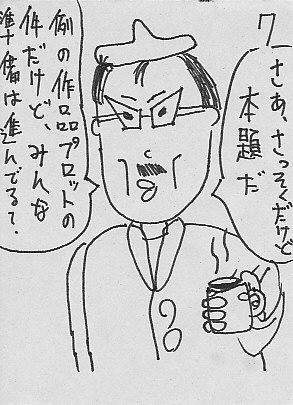 7
さあ、さっそくだけど
本題だ
例の作品プロットの
件だけど、みんな
準備は進んでる?